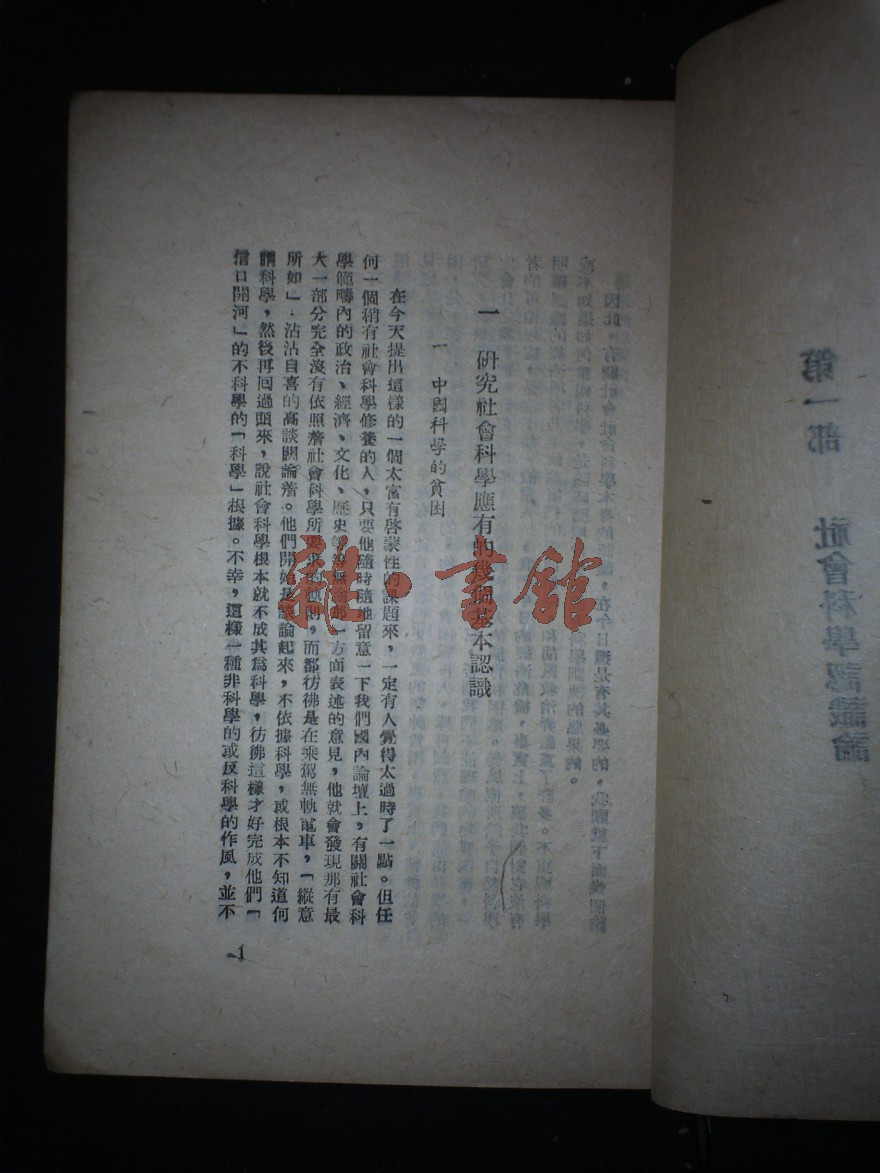 第一部　社會科學認識論
一　研究社會科學應有的幾個基本認識
一　中國科學的貧困
在今天提出這樣的一個太富有啓蒙性的課題來，一定有人覺得太過時了一點。但任
何一個稍有社會科學修養的人，只要他隨時隨地留意一下我們國內論壇上，有關社會科
學範疇內的政治、經濟、文化、歷史等等無論那一方面表述的意見，他就會發現那有最
大一部分完全沒有依照着社會科學所要求的法則，而都彷彿是在乘駕無軌電車，「縱意
所如」，沾沾自喜的高談闊論着。他們開始是談論起來，不依據科學，或根本不知道何
謂科學，然後再囘過頭來，說社會科學根本就不成其爲科學，彷彿這樣才好完成他們「
信口開河」的不科學的「科學」根據。不幸，這樣一種非科學的或反科學的作風，並不
1
雜·書館